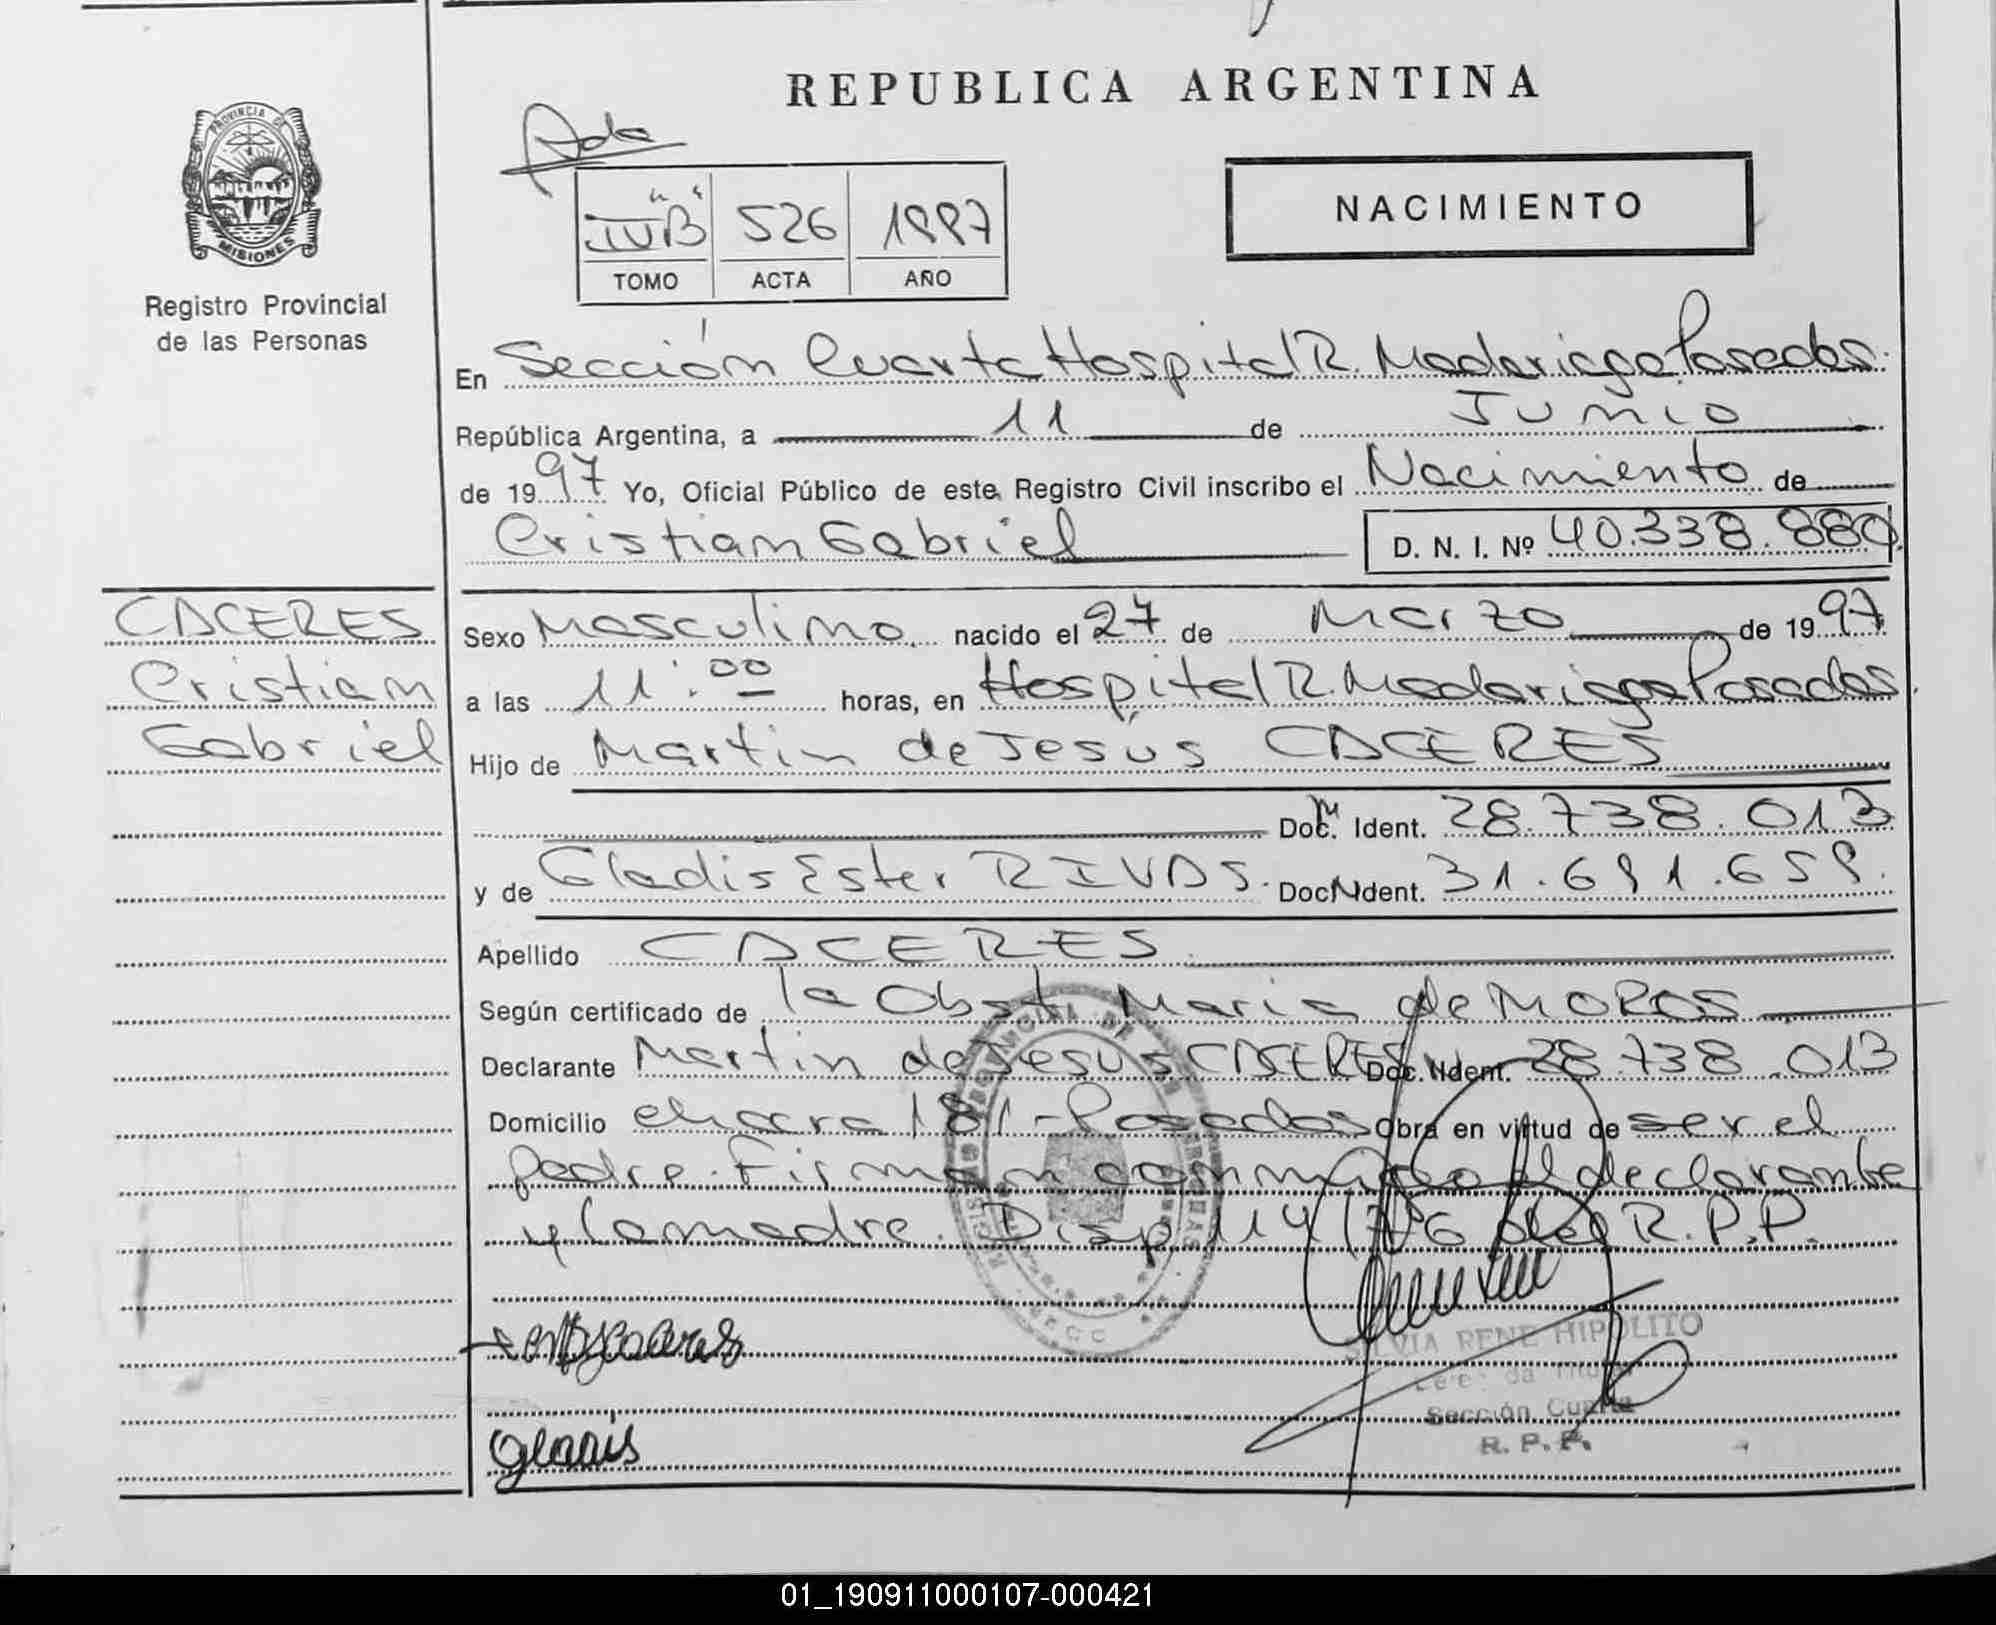 REPUBLICA ARGENTINA
PROVINCIA DE
MISIONES
Registro Provincial
de las Personas
IV "B" 526 1997
TOMO ACTA AÑO
NACIMIENTO
En Sección Cuarta Hospital R. Madariaga Posadas.
República Argentina, a 11 de Junio
de 1997 Yo, Oficial Público de este Registro Civil inscribo el Nacimiento de
Cristian Gabriel D. N. I. Nº 40.338.880
CACERES
Cristian
Gabriel
Sexo Masculino nacido el 27 de Marzo de 1997
a las 11:00 horas, en Hospital R. Madariaga Posadas.
Hijo de Martin de Jesús CACERES
Doc. Ident. 28.738.013
y de Gladis Ester RIVAS. Doc. Ident. 31.691.659.
Apellido CACERES
Según certificado de la Obst. Maria de MOROS
Declarante Martin de Jesus CACERES Doc. Ident. 28.738.013
Domicilio chacra 181 - Posadas Obra en virtud de ser el
padre. Firman conmigo el declarante
y la madre. Disp 114/76 del R.P.P.
SILVIA RENE HIPOLITO
Sección Cuarta
R. P. P.
Gladis
01_190911000107-000421